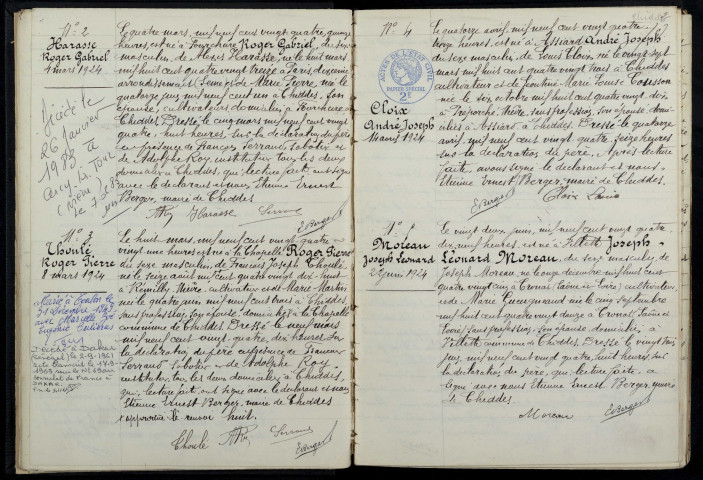 N° 2
Harasse
Roger Gabriel
4 mars 1924
Le quatre mars, mil neuf cent vingt quatre, quinze
heures, est né à Fourchure Roger Gabriel, du sexe
masculin, de Alexis Harasse, né le huit mars
mil huit cent quatre vingt treize à Paris, dixième
arrondissement et de Marie Pierre, née le
quatorze juin mil neuf cent un à Chiddes, Son
épouse, cultivateurs domiciliés à Fourchure
Chiddes. Dressé le cinq mars mil neuf cent vingt
quatre, huit heures, Sur la déclaration du père
en présence de François Serrand, Sabotier et
de Adolphe Roy, instituteur tous les deux
domiciliés à Chiddes, qui, lecture faite, ont signé
avec le déclarant et nous Etienne Ernest
Berger, maire de Chiddes.
ARoy Harasse Serrand
EBerger
Décédé
26 janvier
1983 à
Cercy la Tour
(Nièvre)
N° 3
Choulé
Roger Pierre
8 mars 1924
Le huit mars, mil neuf cent vingt quatre,
vingt une heures est né à la Chapelle Roger Pierre
du sexe masculin de François Joseph Choulé,
né le seize août mil huit cent quatre vingt dix huit
à Rémilly, Nièvre, cultivateur et de Marie Martin
née le quatre juin, mil neuf cent trois à Chiddes,
Sans profession, Son épouse, domiciliés à la Chapelle
commune de Chiddes. Dressé le neuf mars
mil neuf cent vingt quatre, dix heures, Sur
la déclaration du père en présence de François
Serrand Sabotier et de Adolphe Roy,
instituteur, tous les deux domiciliés à Chiddes,
qui, lecture faite, ont signé avec le déclarant et nous
Etienne Ernest Berger, maire de Chiddes
approuvé le renvoi huit.
Choulé ARoy Serrand
EBerger
Marié à Toulon le
31 décembre 1943
avec Marcelle
Eugénie
Décédé à Dakar
(Sénégal) le 2.9.1961
N° 4
Cloix
André Joseph
14 avril 1924
ACTES DE L'ETAT CIVIL
PAPIER SPECIAL
2F
Le quatorze avril, mil neuf cent vingt quatre
treize heures, est né à Assiard André Joseph
du sexe masculin, de Louis Cloix, né le vingt sept
mars mil huit cent quatre vingt trois à Chiddes
cultivateur et de Jeantine Marie Louise
née le six octobre mil huit cent quatre vingt dix
à Préporché, Nièvre, Sans profession, Son épouse, domi-
ciliés à Assiard, à Chiddes. Dressé le quatorze
avril, mil neuf cent vingt quatre, Seize heures
sur la déclaration du père, Après lecture
faite, avons signé le déclarant et nous
Etienne Ernest Berger, maire de Chiddes.
EBerger Cloix Louis
N° 5
Moreau
Joseph Léonard
22 juin 1924
Le vingt deux juin, mil neuf cent vingt quatre
dix neuf heures, est né à Villette Joseph
Léonard Moreau, du sexe masculin, de
Joseph Moreau, né le onze décembre mil huit cent
quatre vingt cinq à Cronat (Saône et Loire), cultivateur,
et de Marie Guingnand née le cinq septembre
mil huit cent quatre vingt douze à Cronat (Saône et
Loire), Sans profession, Son épouse domiciliés à
Villette, commune de Chiddes. Dressé le vingt trois
juin, mil neuf cent vingt quatre, huit heures, sur
la déclaration du père, qui, lecture faite, a
signé avec nous Etienne Ernest Berger, maire
de Chiddes
Moreau EBerger